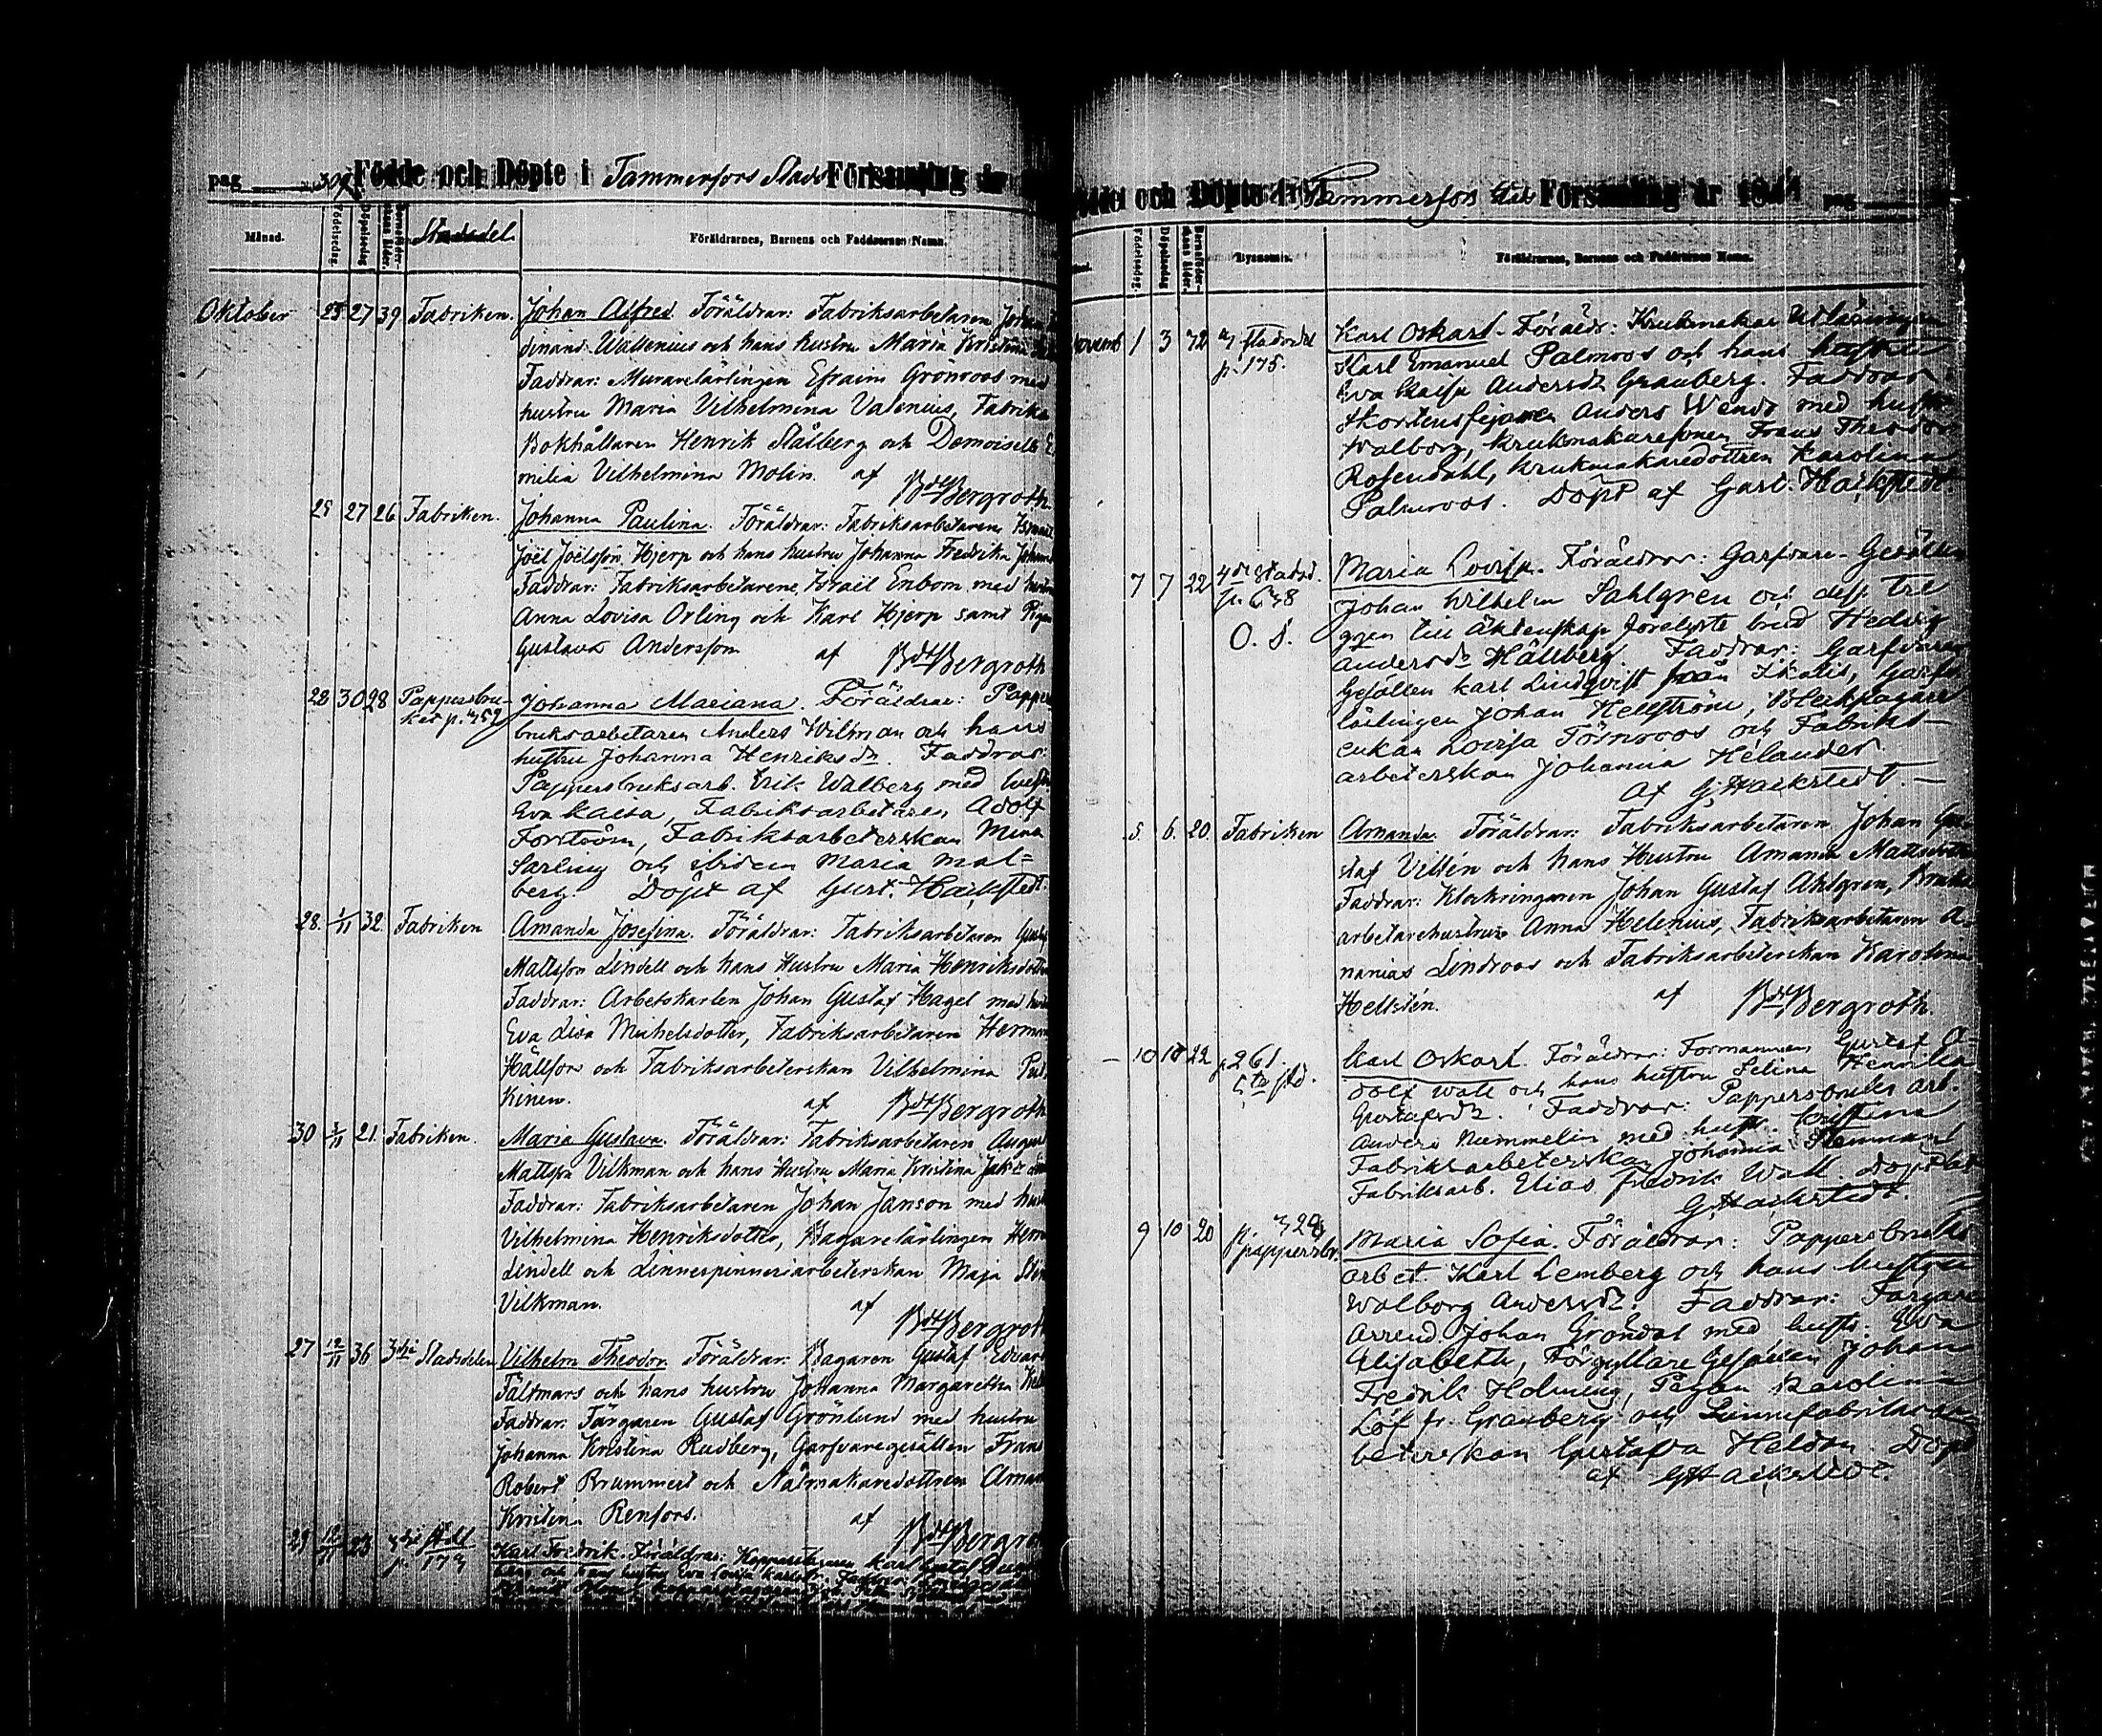 pag 309 Födde och Döpte i Tammerfors Stads Församling år
Månad. Födelsedag. Döpelsedag Barnaföder-skans ålder. Stadsdel Föräldrarnes, Barnens och Faddrarnes Namn.
Oktober 25 27 39 Fabriken. Johan Alfred. Föräldrar: Fabriksarbetaren Johan
dinand Wallenius och hans hustru Maria Kristina
Faddrar: Murarelärlingen Efraim Grönroos med
hustru Maria Vilhelmina Valenius, Fabriks
Bokhållaren Henrik Stålberg och Demoiselle E
milia Vilhelmina Molin. af Bergroth.
25 27 26 Fabriken. Johanna Paulina. Föräldrar: Fabriksarbetaren
Joel Joelsson Hjerp och hans hustru Johanna Fredrika
Faddrar: Fabriksarbetarene Israil Enbom med hustru
Anna Lovisa Orling och Karl Hjerp samt Pigan
Gustava Andersson af Bergroth
28 30 28 Pappersbru-
ket p. 759 Johanna Mariana. Föräldrar: Pappers
bruksarbetaren Anders Wilman och hans
hustru Johanna Henriksdr. Faddrar:
Pappersbruksarb. Erik Walberg med hustr
Eva Caisa, Fabriksarbetaren Adolf
Forström, Fabriksarbeterskan Mina
Sarling och ibidem Maria Mal=
berg. Döpt af Gust. Hackstedt.
28. 1/11 32. Fabriken Amanda Josefina. Föräldrar: Fabriksarbetaren Gustaf
Mattsson Lindell och hans Hustru Maria Henriksdotter
Faddrar: Arbetskarlen Johan Gustaf Hagel med hustru
Eva Lisa Michelsdotter, Fabriksarbetaren Herman
Hällfors och Fabriksarbeterskan Vilhelmina
Kinen. af Bergroth
30 3/11 21. Fabriken. Maria Gustava. Föräldrar: Fabriksarbetaren August
Mattsson Vilkman och hans Hustru Maria Kristina
Faddrar: Fabriksarbetaren Johan Janson med hustru
Vilhelmina Henriksdotter, Bagarelärlingen Herm
Lindell och Linnespinneriarbeterskan Maja
Vilkman. af Bergroth
27 12/11 36 3dje Stadsdelen Vilhelm Theodor. Föräldrar: Bagaren Gustaf Edvard
Fältmars och hans hustru Johanna Margaretha
Faddrar: Färgaren Gustaf Grönlund med hustru
Johanna Kristina Rudberg, Garfvaregesällen Frans
Robert Brummert och Nålmakaredottren Aman
Kristina Renfors. af Bergroth
29 12/11 23 p. 173 Karl Fredrik. Föräldrar: Kopparslagaren Karl Gustaf
och hans hustru Eva Lovisa
och Döpte i Tammerfors Församling år pag
Födelsedag. Döpelsedag Barnaföder-skans ålder. Bynamn. Föräldrarnes, Barnens och Faddrarnes Namn.
1 3 p. 175. Karl Oskar. Föräldr: Krukmakare
Karl Emanuel Palmroos och hans hustru
Eva Caisa Andersdr Granberg. Faddrar:
Skorstensfejaren Anders Wendt med hustr
Walborg, Krukmakaresonen Frans Theodor
Rosendahl, Krukmakaredottren Karolina
Palmroos. Döpt af Gust. Hackstedt
7 7 22 4de Stadsd.
p. 678
O. S. Maria Lovisa. Föräldrar: Garfvare-Gesällen
Johan Wilhelm Sahlgren och dess tre
ggr till äktenskap förelyste brud Hedvig
Andersdr Hällberg. Faddrar: Garfvare
Gesällen Karl Lindqvist från Ikalis, Garfv
lärlingen Johan Hellström, Bleckslagare
enkan Lovisa Törnroos och Fabriks-
arbeterskan Johanna Helander
af G. Hackstedt.-
5. 6. 20. Fabriken Amanda. Föräldrar: Fabriksarbetaren Johan Gu
staf Villén och hans Hustru Amanda Mattsdotter
Faddrar: Klockringaren Johan Gustaf Ahlgren, Bruks
arbetarehustrun Anna Helenius, Fabriksarbetaren A-
nanias Lindroos och Fabriksarbeterskan Karolina
Hellstén. af Bergroth.
10 22 p 261.
5te std. Karl Oskar. Föräldrar: Formannen Gustaf A-
dolf Wall och hans hustru Selina Henrika
Gustafsdr. Faddrar: Pappersbruks arb.
Anders Nummelin med hustr. Cristina
Fabriksarbeterskan Johanna Stenman
Fabriksarb. Elias Fredrik Wall. Döpt af
G. Hackstedt.
9 10 20 p. 729
pappersbr. Maria Sofia. Föräldrar: Pappersbruks
arbet. Karl Lemberg och hans hustru
Walborg Andersdr. Faddrar: Färgare
Arrend. Johan Gröndal med hustr: Eva
Elisabeth, Förgyllare Gesällen Johan
Fredrik Holming, Pigan Karolina
Löf fr. Granberg och Linnefabriksar
beterskan Gustafva Heldan. Döpt
af G Hackstedt.